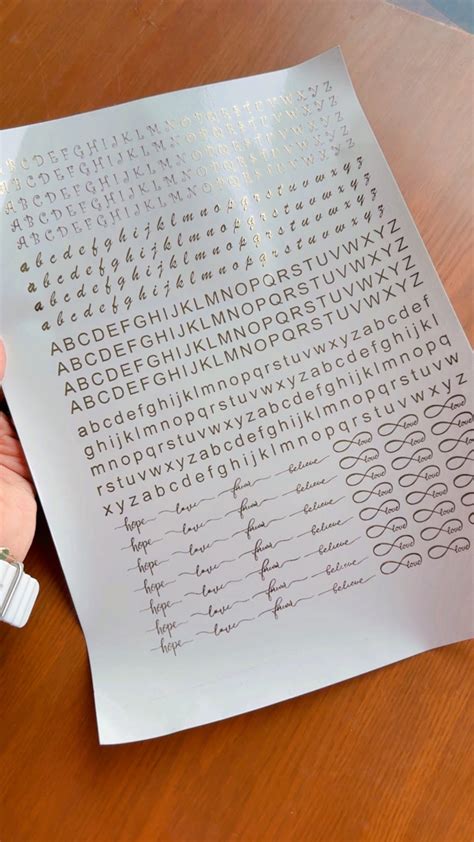 ABCDEFGHIJKLMNOPQRSTUVWXYZ
ABCDEFGHIJKLMNOPQRSTUVWXYZ
ABCDEFGHIJKLMNOPQRSTUVWXYZ
ABCDEFGHIJKLMNOPQRSTUVWXYZ
abcdefghijklmnopqrstuvwxyz
abcdefghijklmnopqrstuvwxyz
abcdefghijklmnopqrstuvwxyz
abcdefghijklmnopqrstuvwxyz
ABCDEFGHIJKLMNOPQRSTUVWXYZ
ABCDEFGHIJKLMNOPQRSTUVWXYZ
ABCDEFGHIJKLMNOPQRSTUVWXYZ
ABCDEFGHIJKLMNOPQRSTUVWXYZ
abcdefghijklmnopqrstuvwxyzabcdef
ghijklmnopqrstuvwxyzabcdefghijkl
mnopqrstuvwxyzabcdefghijklmnopq
rstuvwxyzabcdefghijklmnopqrstuvw
xyzabcdefghijklmnopqrstuvwxyz
love love
hope love faith believe love love
hope love faith believe love love
hope love faith believe love love
hope love faith believe love love
hope love faith believe love love
hope love faith believe love love
hope love faith believe love love